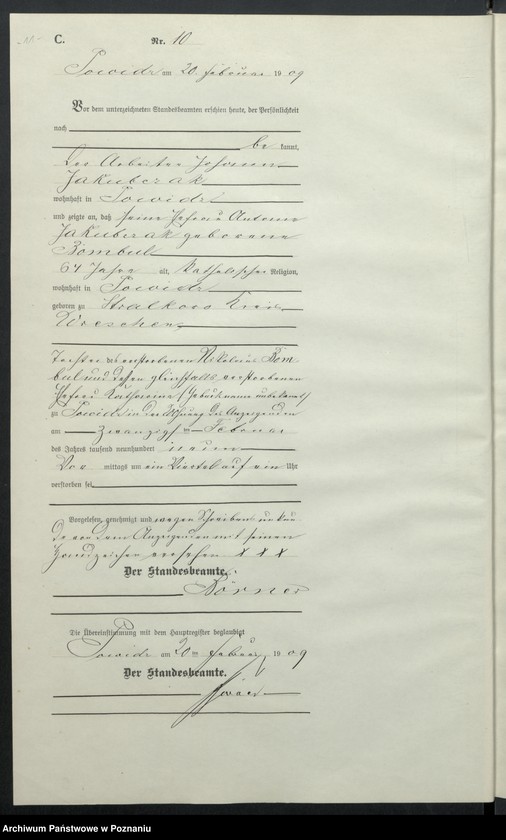 C. Nr. 10
Powidz am 20. Februar 1909
Vor dem unterzeichneten Standesbeamten erschien heute, der Persönlichkeit
nach
be kannt,
der Arbeiter Johann
Jakubczak
wohnhaft in Powidz
und zeigte an, daß seine Ehefrau Antonie
Jakubczak geborene
Bombul
64 Jahre alt, katholischer Religion,
wohnhaft in Powidz
geboren zu Stralkowo Kreis
Wreschen
Tochter des verstorbenen Nikolaus Bom-
bul und dessen gleichfalls verstorbenen
Ehefrau (Geburtsname unbekannt)
zu Powidz in der Wohnung des Anzeigenden
am Zwanzigsten Februar
des Jahres tausend neunhundert neun
Vor mittags um ein Viertel auf ein Uhr
verstorben sei
Vorgelesen, genehmigt und wegen Schreibensunkun-
de von dem Anzeigenden mit seinen
Handzeichen versehen X X X
Der Standesbeamte.
Börner
Die Übereinstimmung mit dem Hauptregister beglaubigt
Powidz am 20ten Februar 1909
Der Standesbeamte.
Archiwum Państwowe w Poznaniu